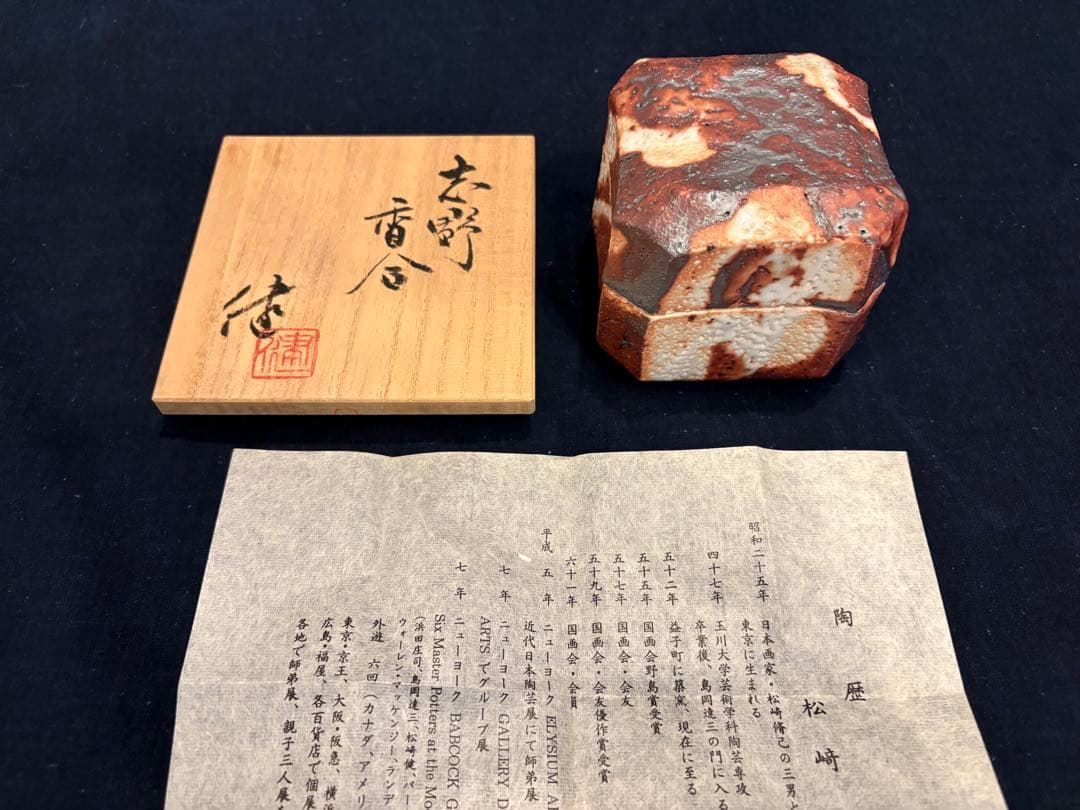 志野
香合
健
健
陶歴
松崎
昭和二十五年 日本画家・松崎脩己の三男と
東京に生まれる
四十七年 玉川大学芸術学科陶芸専攻
卒業後、島岡達三の門に入る
五十二年 益子町に築窯、現在に至る
五十五年 国画会野島賞受賞
五十七年 国画会・会友
五十九年 国画会・会友優作賞受賞
六十一年 国画会・会員
平成 五年 ニューヨーク ELYSIUM A
近代日本陶芸展にて師弟展
七年 ニューヨーク GALLERY D
ARTS でグループ展
七年 ニューヨーク BABCOCK G
Six Master Potters at the Mo
(浜田庄司、島岡達三、松崎健、バー
ウォーレン・マッケンジー、ランデ
外遊 六回(カナダ、アメリ
東京・京王、大阪・阪急、横浜
広島・福屋、各百貨店で個展
各地で師弟展、親子三人展